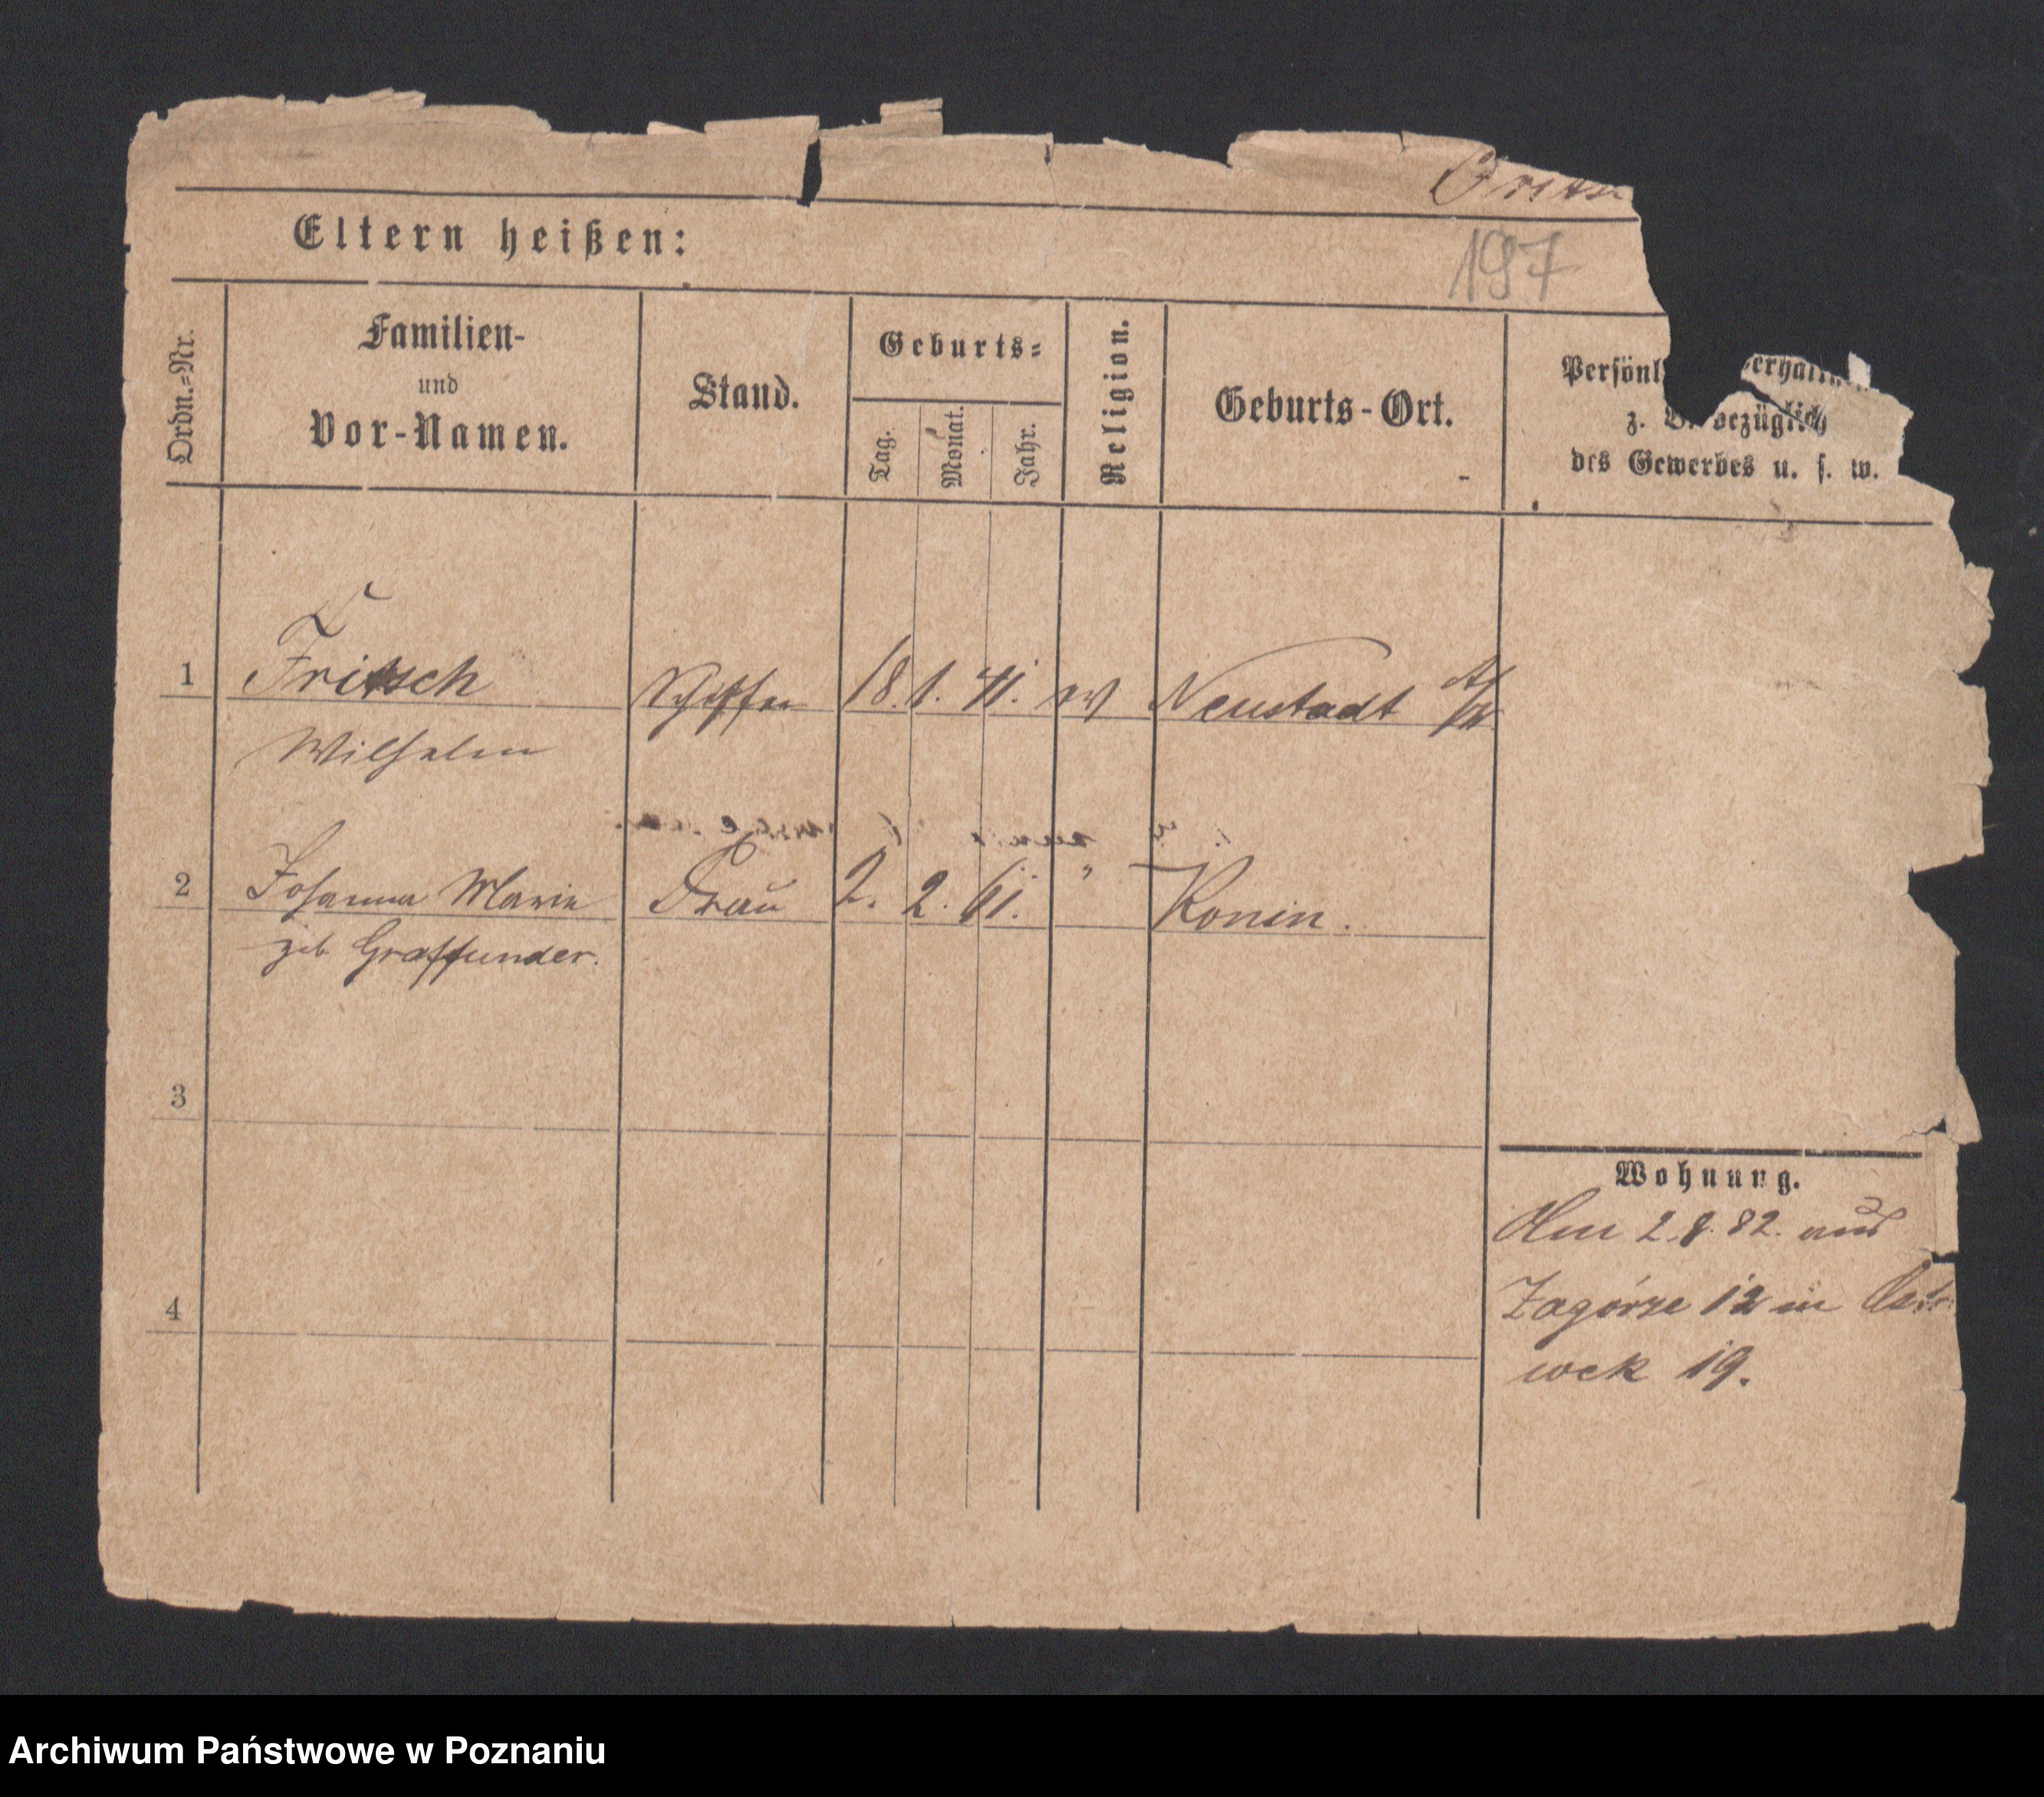 197
Eltern heißen:
Ordn.-Nr.
Familien-
und
Vor-Namen.
Stand.
Geburts-
Tag.
Monat.
Jahr.
Religion.
Geburts-Ort.
Persönl
z. B. bezüglich
des Gewerbes u. s. w.
1 Fritsch Schiffer 18. 1. 41. ev Neustadt a/W
Wilhelm
2 Johanna Marie Frau 2. 2. 61. " Konin.
geb Graffunder.
3
4
Wohnung.
Am 2.8.82. aus
Zagórze 12 in Ostro
wek 19.
Archiwum Państwowe w Poznaniu